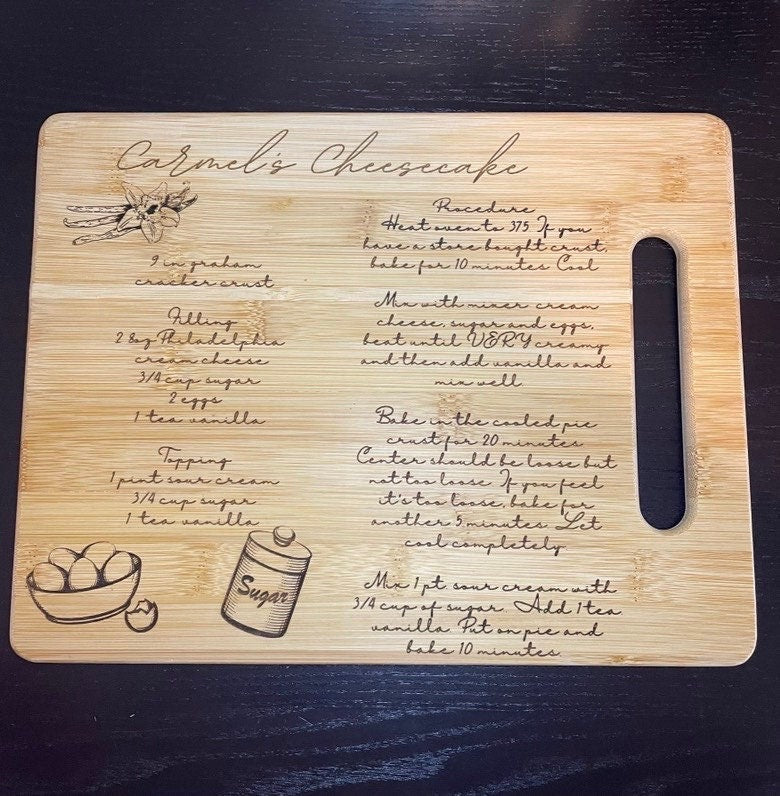 Carmel's Cheesecake
9 in graham
cracker crust
Filling
2 8oz Philadelphia
cream cheese
3/4 cup sugar
2 eggs
1 tea vanilla
Topping
1 pint sour cream
3/4 cup sugar
1 tea vanilla
Sugar
Procedure
Heat oven to 375 If you
have a store bought crust,
bake for 10 minutes Cool
Mix with mixer cream
cheese, sugar and eggs,
beat until VERY creamy
and then add vanilla and
mix well.
Bake in the cooled pie
crust for 20 minutes
Center should be loose but
not too loose If you feel
it's too loose, bake for
another 5 minutes. Let
cool completely
Mix 1 pt sour cream with
3/4 cup of sugar. Add 1 tea
vanilla Put on pie and
bake 10 minutes.